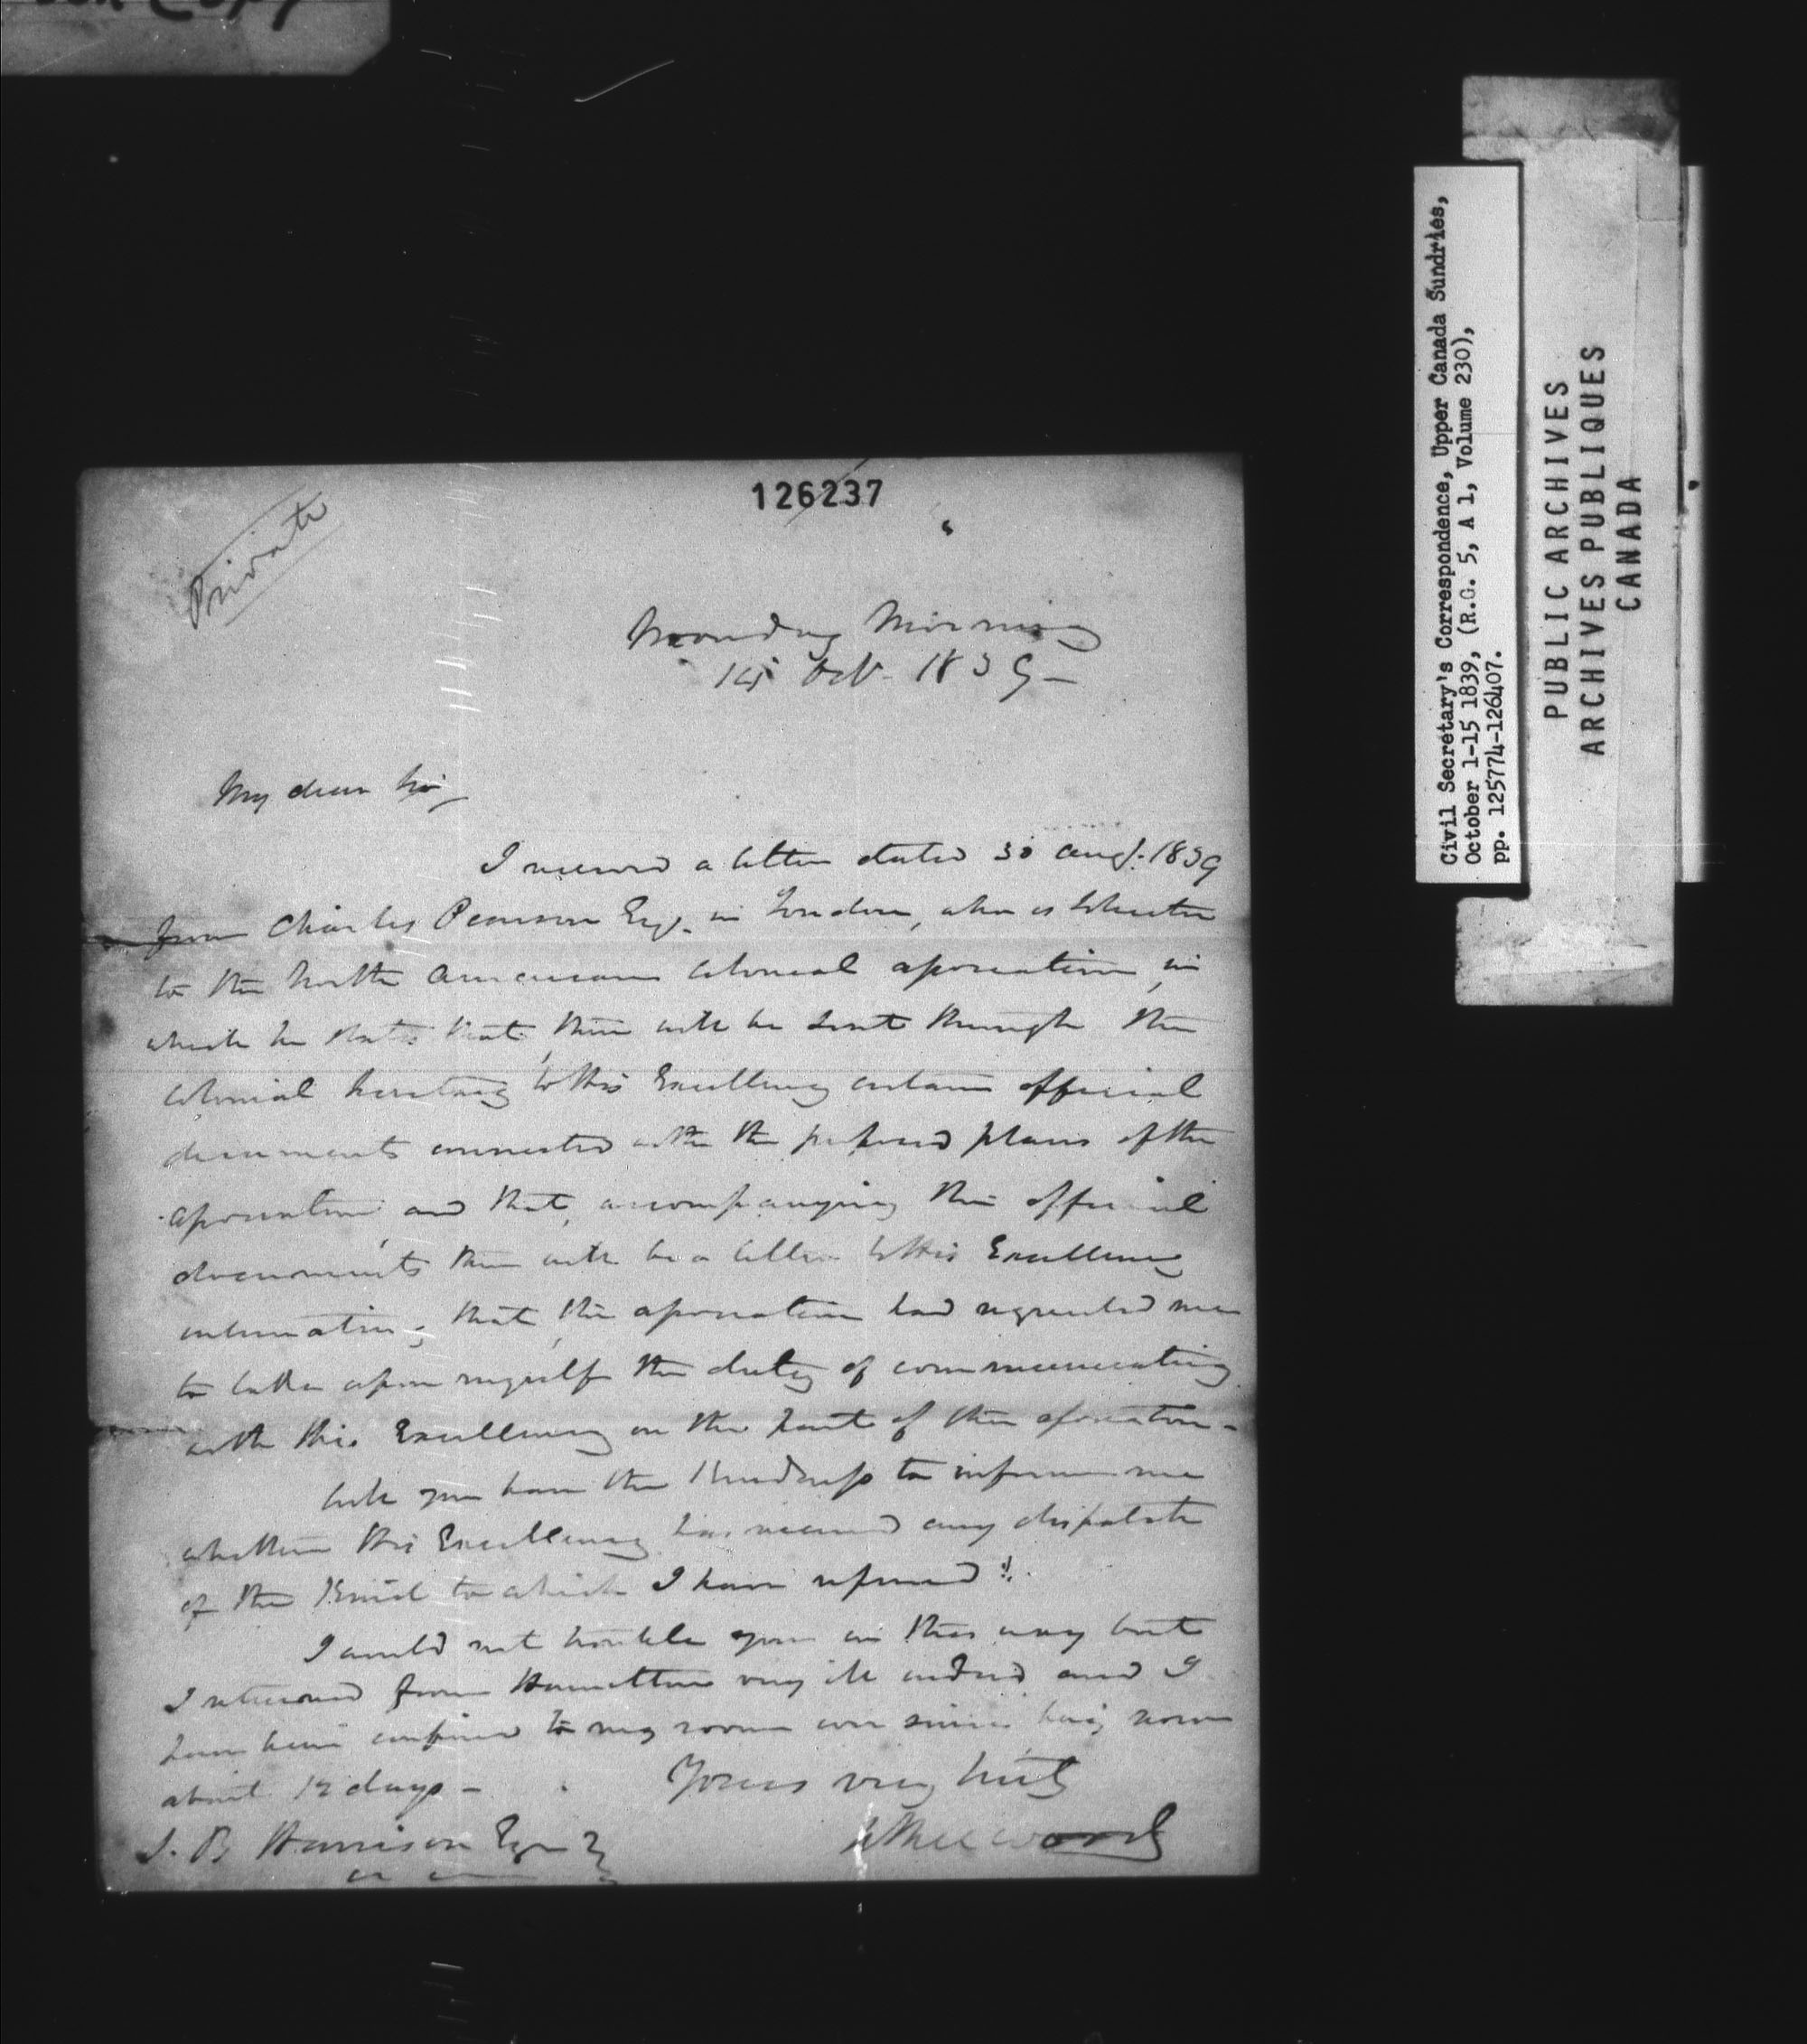 Copy
126237
Private
Monday Morning
14 Oct. 1839 –
My dear Sir,
I received a letter dated 30 Augt. 1839
from Charles Pearson Esq. in London, who is Solicitor
to the North American Colonial Association, in
which he states that, there will be sent through the
Colonial Secretary to His Excellency certain official
documents connected with the proposed plans of the
Association, and that, accompanying the official
documents there will be a letter to His Excellency
intimating, that, the Association had requested me
to take upon myself the duty of communicating
with His Excellency on the part of the Association –
Will you have the kindness to inform me
whether His Excellency has received any dispatch
of the kind to which I have referred?
I would not trouble you in this way but
I returned from Hamilton very ill indeed and I
have been confined to my room ever since being now
about 12 days –
Yours very truly
S. B. Harrison Esqr
Civil Secretary's Correspondence, Upper Canada Sundries,
October 1-15 1839, (R.G. 5, A 1, Volume 230),
pp. 125774-126407.
PUBLIC ARCHIVES
ARCHIVES PUBLIQUES
CANADA